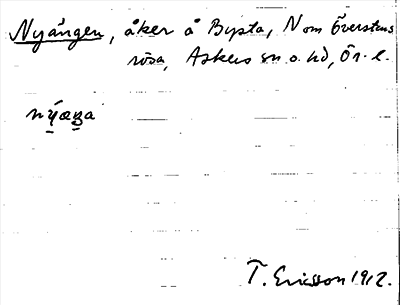 Nyängen, åker å Bysta, N om Överstens
rösa, Askers sn o. hd, Ör. l.
nýæŋa
T. Ericsson 1912.